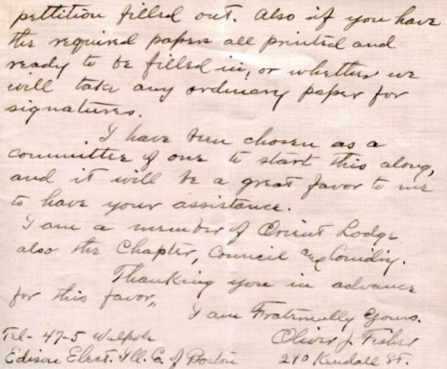 pettition filled out. Also if you have
the required papers all printed and
ready to be filled in, or whether we
will take any ordinary paper for
signatures.
I have been chosen as a
committee of one to start this along,
and it will be a great favor to me
to have your assistance.
I am a member of Orient Lodge
also the Chapter, Council and Comdry.
Thanking you in advance
for this favor,,
I am Fraternally Yours.
Tel- 47-5 Walpole Oliver J. Fisher
Edison Elect. Ill. Co. of Boston 210 Kendall St.